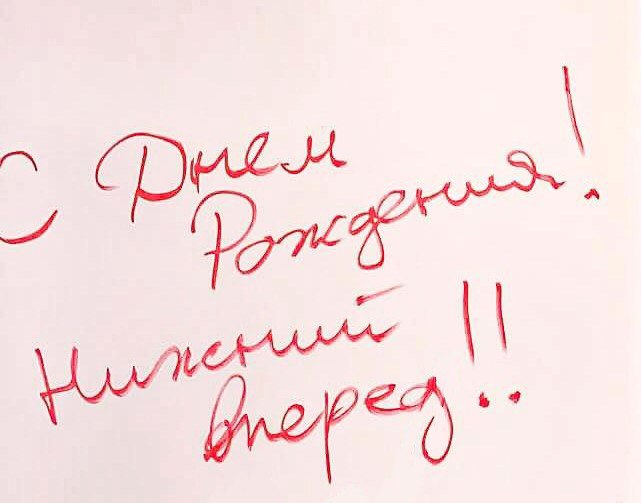 С Днем
Рождения!
Нижний
вперед!!